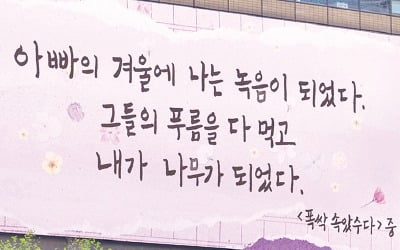 아빠의 겨울에 나는 녹음이 되었다.
그들의 푸름을 다 먹고
내가 나무가 되었다.
<폭싹 속았수다> 중